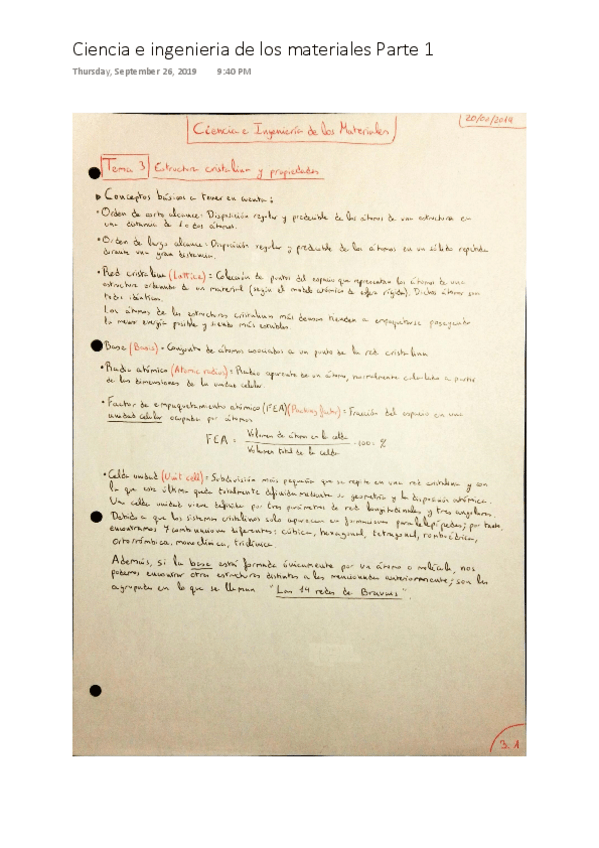 Ciencia e ingenieria de los materiales Parte 1
Thursday, September 26, 2019 9:40 PM
Ciencia e Ingeniería de los Materiales
Tema 3 Estructura cristalina y propiedades
Conceptos básicos a tener en cuenta:
• Orden de corto alcance: Disposición regular y predecible de los átomos de una estructura en
una distancia de 1 o dos átomos.
• Orden de largo alcance: Disposición regular y predecible de los átomos en un sólido repetida
durante una gran distancia.
• Red cristalina (Lattice) = Colección de puntos del espacio que representan los átomos de una
estructura ordenada de un material (según el modelo atómico de esfera rígida). Dichos átomos son
todos idénticos.
Los átomos de las estructuras cristalinas más densas tienden a empaquetarse poseyendo
la menor energía posible y siendo más estables.
Base (Basis) = Conjunto de átomos asociados a un punto de la red cristalina
• Radio atómico (Atomic radius) = Radio aparente de un átomo, normalmente calculado a partir
de las dimensiones de la celda unidad celular.
• Factor de empaquetamiento atómico (FEA) (Packing factor) = Fracción del espacio en una
unidad celular ocupada por átomos
FEA = Volumen de átomos en la celda / Volumen total de la celda · 100 = %
• Celda unidad (Unit cell) = Subdivisión más pequeña que se repite en una red cristalina y con
la que esta última queda totalmente definida mediante su geometría y la disposición atómica.
Una celda unidad viene definida por tres parámetros de red longitudinales, y tres angulares.
Debido a que los sistemas cristalinos solo aparecen en formas paralelepípedas; por tanto,
encontramos 7 combinaciones diferentes: cúbica, hexagonal, tetragonal, romboédrica,
ortorrómbica, monoclínica, triclínica.
Además, si la base está formada únicamente por un átomo o molécula, nos
podemos encontrar otras estructuras distintas a las mencionadas anteriormente; son las
agrupadas en lo que se llaman "Las 14 redes de Bravais".
3.1